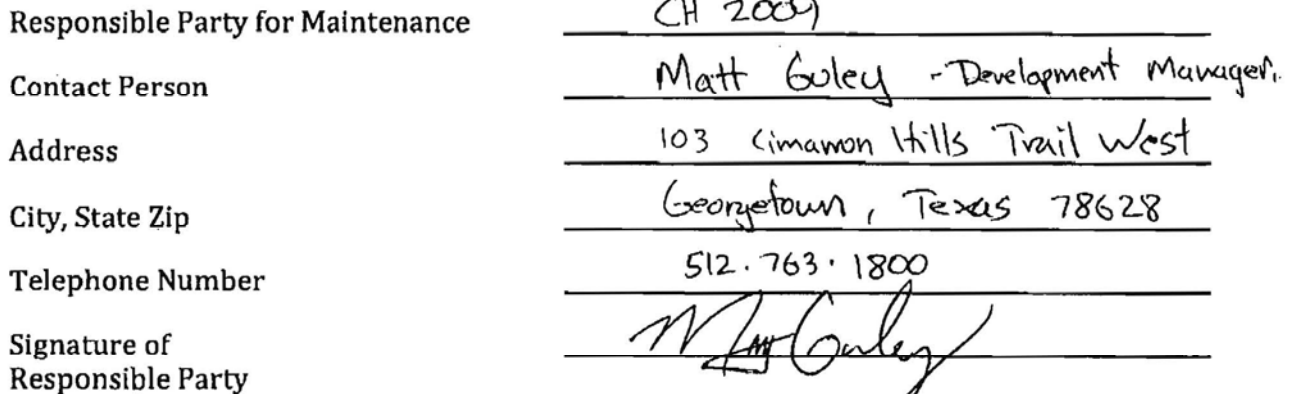 Responsible Party for Maintenance CH 2009
Contact Person Matt Guley - Development Manager.
Address 103 Cimarron Hills Trail West
City, State Zip Georgetown, Texas 78628
Telephone Number 512.763.1800
Signature of Matt Guley
Responsible Party